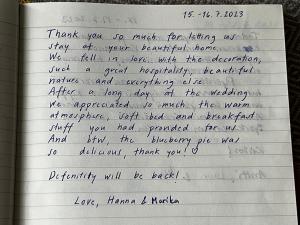 15.-16.7.2023
Thank you so much for letting us
stay at your beautiful home.
We fell in love with the decoration,
such a great hospitality, beautiful
nature and everything else.
After a long day at the wedding
we appreciated so much the warm
atmosphere, soft bed and breakfast
stuff you had provided for us.
And btw, the blueberry pie was
so delicious, thank you!
Defenitily will be back!
Love, Hanna & Marika